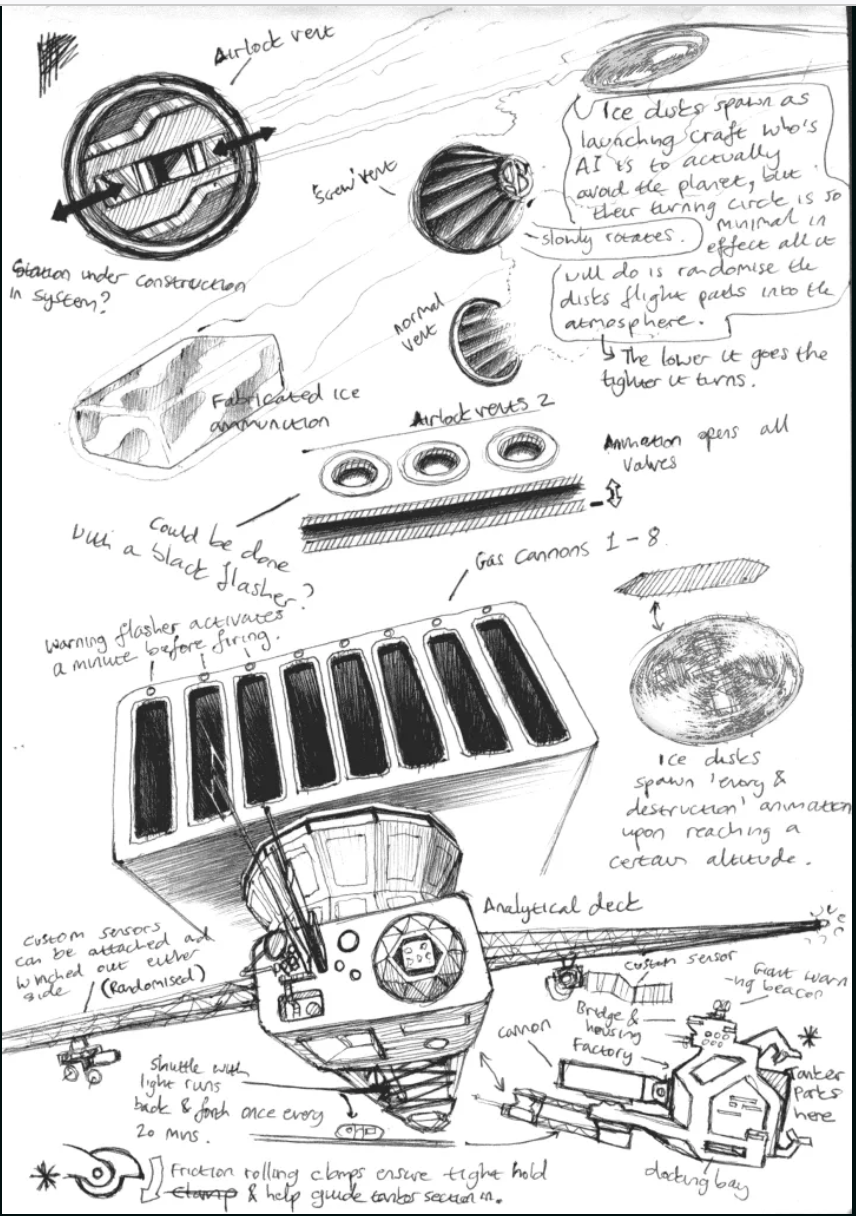 Airlock vent
Ice disks spawn as
launching craft who's
AI is to actually
avoid the planet, but
their turning circle is so
minimal in
effect all it
will do is randomise the
disks flight paths into the
atmosphere.
The lower it goes the
tighter it turns.
'screw' vent
slowly rotates.
Station under construction
in system?
normal
vent
Fabricated ice
ammunition
Airlock vents 2
Animation opens all
valves
Could be done
with a black flasher?
Gas cannons 1-8
Warning flasher activates
a minute before firing.
Ice disks
spawn 'envoy &
destruction' animation
upon reaching a
certain altitude.
Analytical deck
Custom sensors
can be attached and
winched out either
side (Randomised)
custom sensor
Giant warn
-ing beacon
Bridge &
housing
Factory
cannon
Tanker
parks
here
Shuttle with
light runs
back & forth once every
20 mins.
docking bay
Friction rolling clamps ensure tight hold
Clamp & help guide tanker section in.